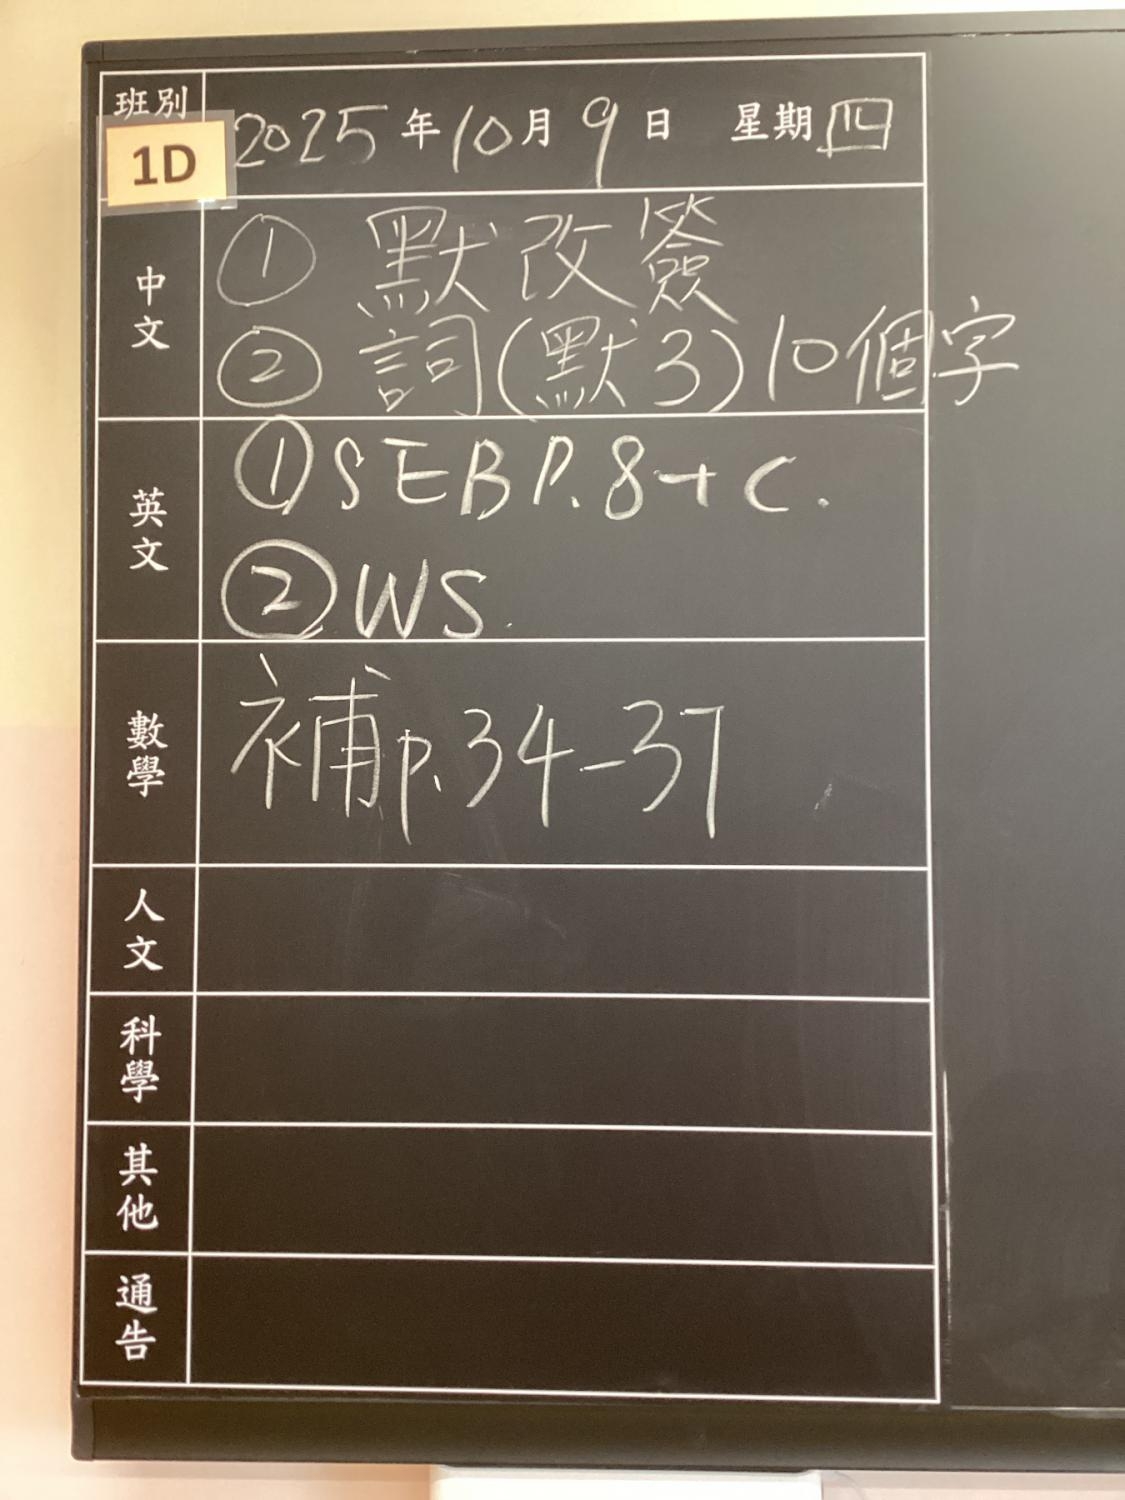 班別
1D
2025年10月9日 星期四
中文
① 默改簽
② 詞(默3)10個字
英文
① SEB P.8+C.
② WS.
數學
補p.34-37
人文
科學
其他
通告